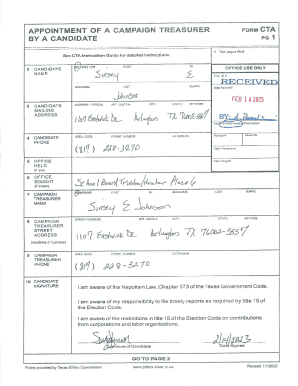 APPOINTMENT OF A CAMPAIGN TREASURER
BY A CANDIDATE
FORM CTA
PG 1
See CTA Instruction Guide for detailed instructions.
1 Total pages filed:
2 CANDIDATE
NAME
MS / MRS / MR FIRST MI
Sirsey E
NICKNAME LAST SUFFIX
Johnson
OFFICE USE ONLY
RECEIVED
FEB 14 2023
BY:
3 CANDIDATE
MAILING
ADDRESS
ADDRESS / PO BOX; APT / SUITE #; CITY; STATE; ZIP CODE
1107 Eastwick Dr. Arlington TX 76002-5557
4 CANDIDATE
PHONE
AREA CODE PHONE NUMBER EXTENSION
(817) 228-3270
5 OFFICE
HELD
(if any)
6 OFFICE
SOUGHT
(if known)
School Board Trustee/ Place 6
7 CAMPAIGN
TREASURER
NAME
MS / MRS / MR FIRST MI NICKNAME LAST SUFFIX
Sirsey E Johnson
8 CAMPAIGN
TREASURER
STREET
ADDRESS
(residence or business)
STREET ADDRESS; APT / SUITE #; CITY; STATE; ZIP CODE
1107 Eastwick Dr. Arlington TX 76002-5557
9 CAMPAIGN
TREASURER
PHONE
AREA CODE PHONE NUMBER EXTENSION
(817) 228-3270
10 CANDIDATE
SIGNATURE
I am aware of the Nepotism Law, Chapter 573 of the Texas Government Code.
I am aware of my responsibility to file timely reports as required by title 15 of
the Election Code.
I am aware of the restrictions in title 15 of the Election Code on contributions
from corporations and labor organizations.
2/14/2023
Signature of Candidate Date Signed
GO TO PAGE 2
Forms provided by Texas Ethics Commission www.ethics.state.tx.us Revised 1/1/2023